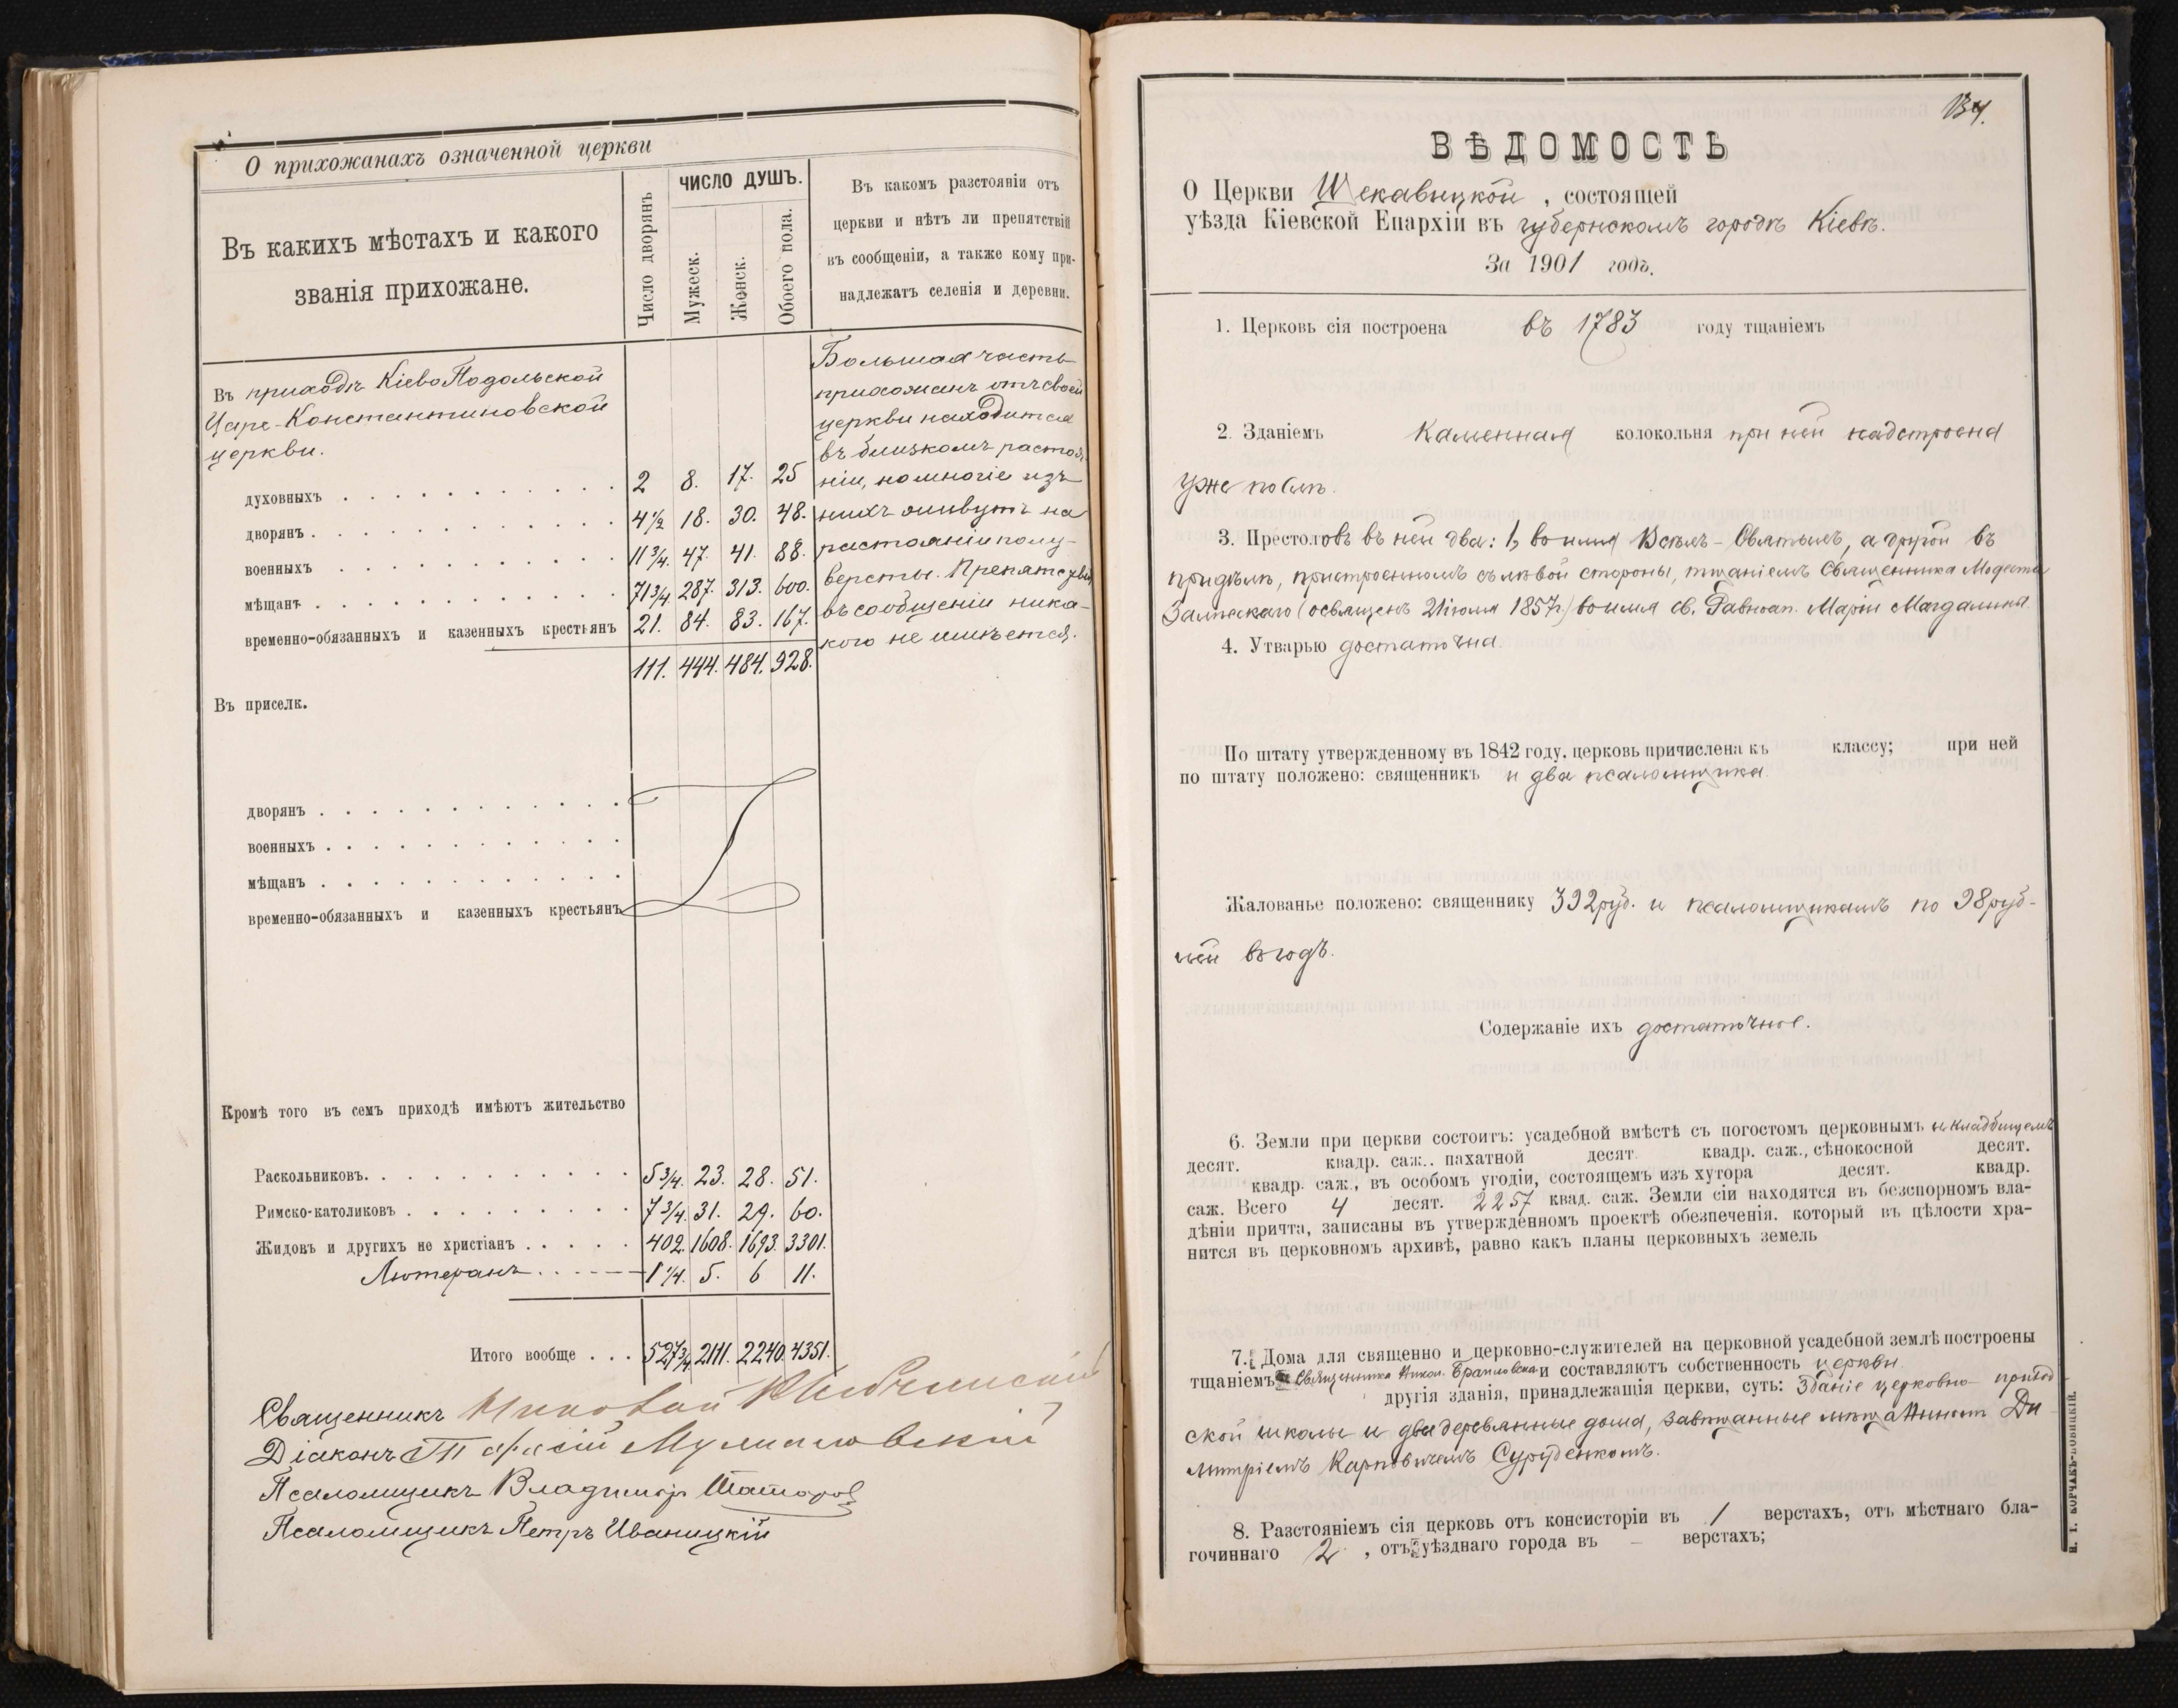 О прихожанахъ означенной церкви
Въ какихъ мѣстахъ и какого
званія прихожане.
Число дворянъ
ЧИСЛО ДУШЪ.
Мужеск.
Женск.
Обоего пола.
Въ какомъ разстояніи отъ
церкви и нѣтъ ли препятствій
въ сообщеніи, а также кому при-
надлежатъ селенія и деревни.
Въ приходѣ Кіево Подольской
Царе-Константиновской
церкви.
духовныхъ 2 8. 17. 25
дворянъ 4 1/2 18. 30. 48.
военныхъ 11 3/4. 47. 41. 88.
мѣщанъ 71 3/4. 287. 313. 600.
временно-обязанныхъ и казенныхъ крестьянъ 21. 84. 83. 167.
111. 444. 484. 928.
Большая часть
прихожанъ отъ своей
церкви находится
въ близкомъ растоя-
ніи, но многіе изъ
нихъ живутъ на
растояніи полу-
версты. Препятствій
въ сообщеніи ника-
кого не имѣется.
Въ приселк.
дворянъ
военныхъ
мѣщанъ
временно-обязанныхъ и казенныхъ крестьянъ
Кромѣ того въ семъ приходѣ имѣютъ жительство
Раскольниковъ 5 3/4. 23. 28. 51.
Римско-католиковъ 7 3/4. 31. 29. 60.
Жидовъ и другихъ не христіанъ 402. 1608. 1693. 3301.
Лютеранъ 1 1/4. 5. 6 11.
Итого вообще 527 3/4. 2111. 2240. 4351.
Священникъ Николай
Діаконъ
Псаломщикъ Владиміръ Шатаров
Псаломщикъ Петръ Иваницкій
134.
ВѢДОМОСТЬ
О Церкви Щекавицкой, состоящей
уѣзда Кіевской Епархіи въ губернскомъ городѣ Кіевѣ.
За 1901 годъ.
1. Церковь сія построена въ 1783 году тщаніемъ
2. Зданіемъ каменная колокольня при ней надстроена
уже послѣ.
3. Престоловъ въ ней два: 1, во имя Всѣхъ-Святыхъ, а другой въ
придѣлѣ, пристроенномъ съ лѣвой стороны, тщаніемъ Священника Модеста
Залѣскаго (освященъ 21 іюля 1857 г.) во имя св. Равноап. Маріи Магдалины.
4. Утварью достаточна.
По штату утвержденному въ 1842 году, церковь причислена къ классу; при ней
по штату положено: священникъ и два псаломщика.
Жалованье положено: священнику 392 руб. и псаломщикамъ по 98 руб-
лей въ годъ.
Содержаніе ихъ достаточное.
6. Земли при церкви состоитъ: усадебной вмѣстѣ съ погостомъ церковнымъ и кладбищемъ
десят. квадр. саж., пахатной десят. квадр. саж., сѣнокосной десят.
квадр. саж., въ особомъ угодіи, состоящемъ изъ хутора десят. квадр.
саж. Всего 4 десят. 2257 квад. саж. Земли сіи находятся въ безспорномъ вла-
дѣніи причта, записаны въ утвержденномъ проектѣ обезпеченія, который въ цѣлости хра-
нится въ церковномъ архивѣ, равно какъ планы церковныхъ земель
7. Дома для священно и церковно-служителей на церковной усадебной землѣ построены
тщаніемъ Священника Никол. и составляютъ собственность церкви.
другія зданія, принадлежащія церкви, суть: Зданіе церковно-приход
ской школы и два деревянные дома, завѣщанные мѣщаниномъ Ди
митріемъ Карповичемъ
8. Разстояніемъ сія церковь отъ консисторіи въ 1 верстахъ, отъ мѣстнаго бла-
гочиннаго 2, отъ уѣзднаго города въ – верстахъ;